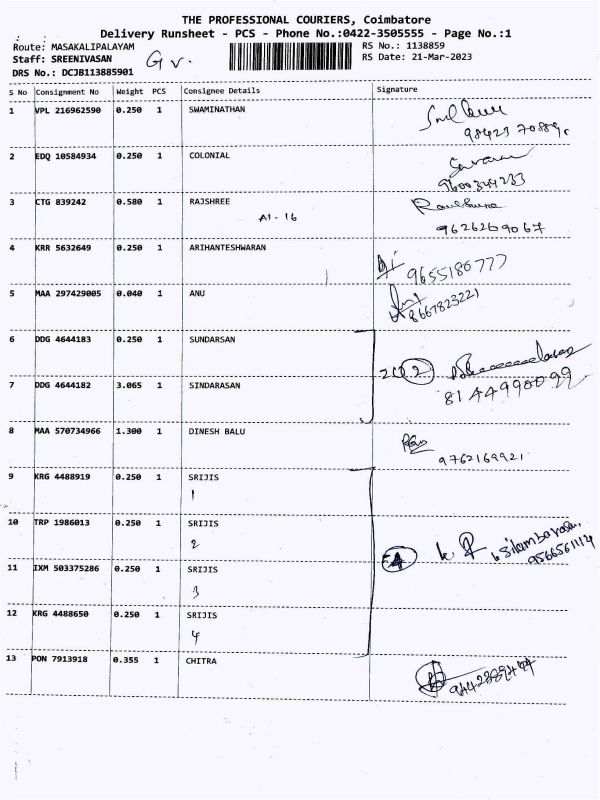 THE PROFESSIONAL COURIERS, Coimbatore
Delivery Runsheet - PCS - Phone No.:0422-3505555 - Page No.:1
Route: MASAKALIPALAYAM RS No.: 1138859
Staff: SREENIVASAN Gv. RS Date: 21-Mar-2023
DRS No.: DCJB113885901
S No Consignment No Weight PCS Consignee Details Signature
1 VPL 216962590 0.250 1 SWAMINATHAN
2 EDQ 10584934 0.250 1 COLONIAL
9600344233
3 CTG 839242 0.580 1 RAJSHREE
A1-16 9626269067
4 KRR 5632649 0.250 1 ARIHANTESHWARAN
9655186777
5 MAA 297429005 0.040 1 ANU
8667823221
6 DDG 4644183 0.250 1 SUNDARSAN
2
7 DDG 4644182 3.065 1 SINDARASAN
8144990099
8 MAA 570734966 1.300 1 DINESH BALU
9762169921
9 KRG 4488919 0.250 1 SRIJIS
1
10 TRP 1986013 0.250 1 SRIJIS
2 4 k. Silambarasan
11 IXM 503375286 0.250 1 SRIJIS
3
12 KRG 4488650 0.250 1 SRIJIS
4
13 PON 7913918 0.355 1 CHITRA